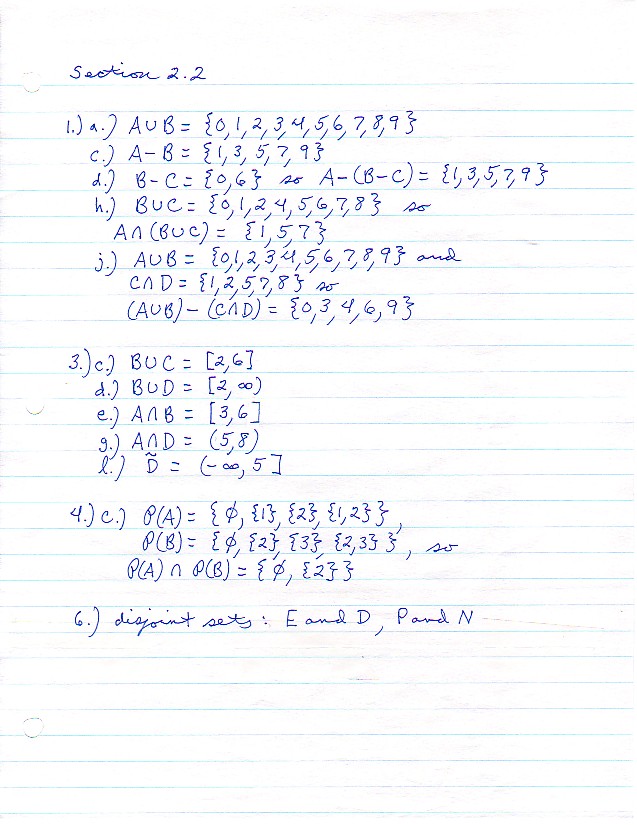 Section 2.2
1.) a.) A∪B = {0,1,2,3,4,5,6,7,8,9}
c.) A-B = {1,3,5,7,9}
d.) B-C = {0,6} so A-(B-C) = {1,3,5,7,9}
h.) B∪C = {0,1,2,4,5,6,7,8} so
A∩(B∪C) = {1,5,7}
j.) A∪B = {0,1,2,3,4,5,6,7,8,9} and
C∩D = {1,2,5,7,8} so
(A∪B)-(C∩D) = {0,3,4,6,9}
3.) c.) B∪C = [2,6]
d.) B∪D = [2,∞)
e.) A∩B = [3,6]
g.) A∩D = (5,8)
l.) D̃ = (-∞,5]
4.) c.) P(A) = {∅, {1}, {2}, {1,2}},
P(B) = {∅, {2}, {3}, {2,3}}, so
P(A) ∩ P(B) = {∅, {2}}
6.) disjoint sets: E and D, P and N